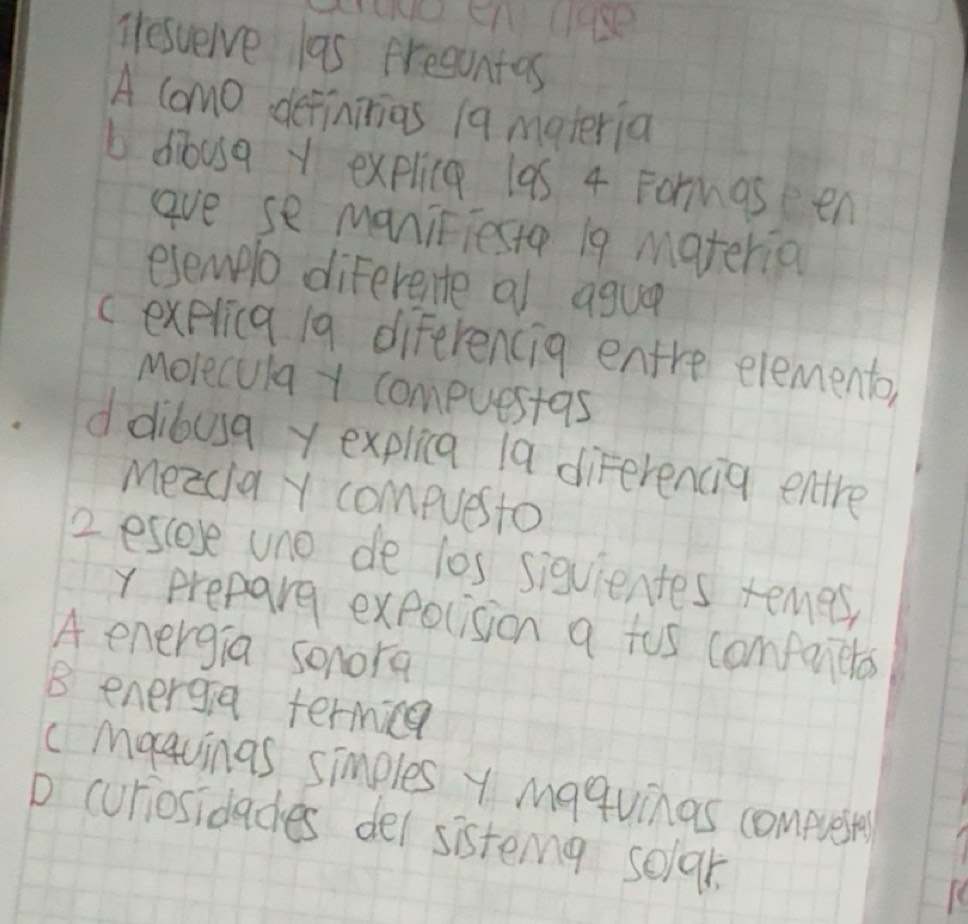 en clase
1 resuelve las preguntas
A como definirias la materia
b dibusa y explica las 4 formas en
que se manifiesta la materia
esemplo diferente al agua
c explica la diferencia entre elemento,
molecula y compuestas
d dibusa y explica la diferencia entre
mezcla y compuesto
2 escose uno de los siguientes temas,
y prepara expocision a tus compañeros
A energía sonora
B energia termica
C maquinas simples y maquinas compuestas
D curiosidades del sistema solar.